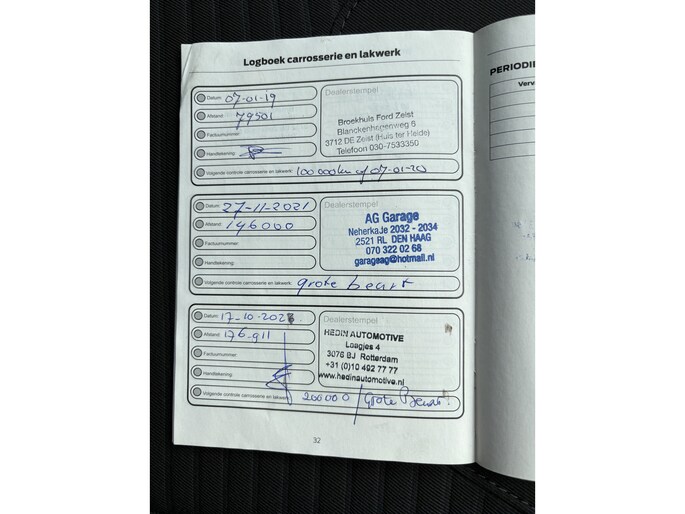 Logboek carrosserie en lakwerk
Datum: 07-01-19
Afstand: 79501
Factuurnummer:
Handtekening:
Volgende controle carrosserie en lakwerk: 100 000 km of 07-01-20
Dealerstempel
Broekhuis Ford Zeist
Blanckenhagenweg 6
3712 DE Zeist (Huis ter Heide)
Telefoon 030-7533350
Datum: 27-11-2021
Afstand: 146000
Factuurnummer:
Handtekening:
Volgende controle carrosserie en lakwerk: grote beurt
Dealerstempel
AG Garage
Neherkade 2032 - 2034
2521 RL DEN HAAG
070 322 02 68
garageag@hotmail.nl
Datum: 17-10-202
Afstand: 176.911
Factuurnummer:
Handtekening:
Volgende controle carrosserie en lakwerk: 200000 / Grote Beurt!
Dealerstempel
HEDIN AUTOMOTIVE
Laagjes 4
3076 BJ Rotterdam
+31 (0)10 492 77 77
www.hedinautomotive.nl
32
PERIODIE
Verv